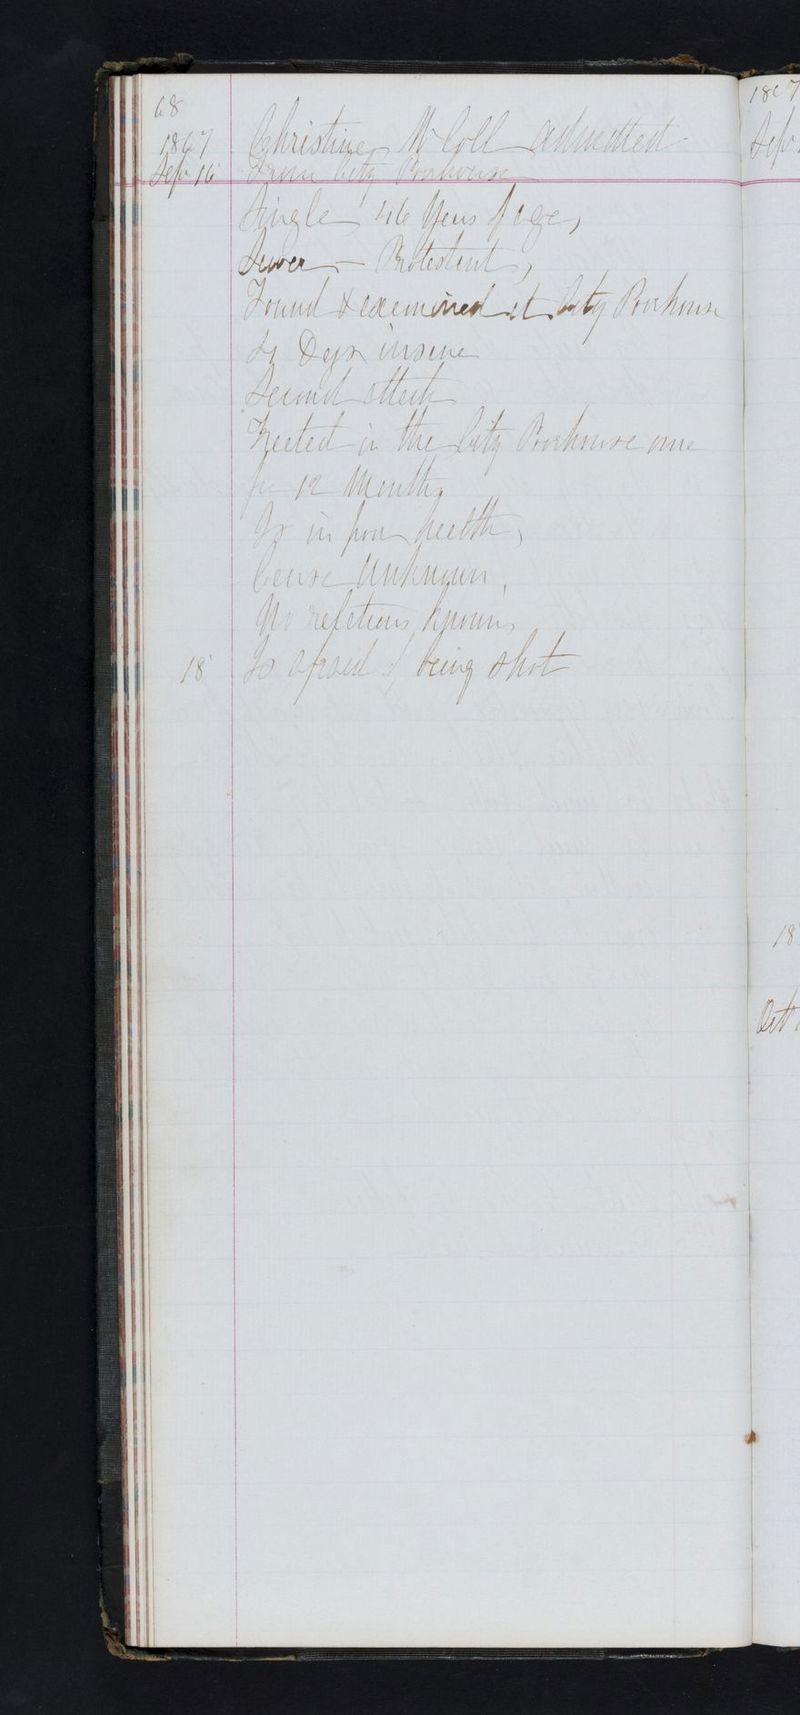 68
1867 Christine McColl admitted
Sep 16 From City Poorhouse
Single 46 Years of age,
Sewer – Protestant,
Found & examined at City Poorhouse
Days insane
Second attack
Treated in the City Poorhouse one
for 12 Months
Is in poor health,
Cause Unknown,
No relations known,
18 Is afraid of being shot
1867
Sep
18
Oct